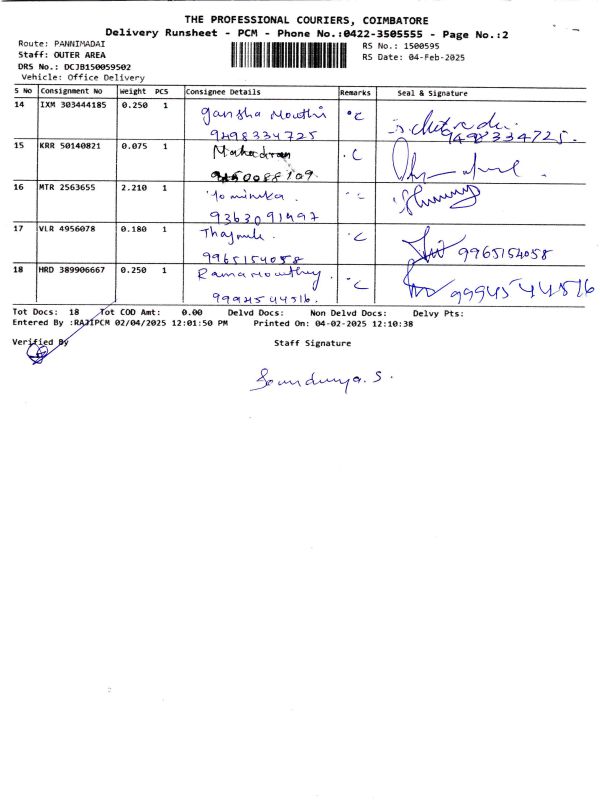 THE PROFESSIONAL COURIERS, COIMBATORE
Delivery Runsheet - PCM - Phone No.:0422-3505555 - Page No.:2
Route: PANNIMADAI
RS No.: 1500595
Staff: OUTER AREA
RS Date: 04-Feb-2025
DRS No.: DCJB150059502
Vehicle: Office Delivery
S No Consignment No Weight PCS Consignee Details Remarks Seal & Signature
14 IXM 303444185 0.250 1 gansha Mouthi °C
9498334725 9498334725.
15 KRR 50140821 0.075 1 Mahadran .C
16 MTR 2563655 2.210 1
9363091497
17 VLR 4956078 0.180 1 .C
9965154058 9965154058
18 HRD 389906667 0.250 1 Ramamourthy °C
9994544516. 9994544516
Tot Docs: 18 Tot COD Amt: 0.00 Delvd Docs: Non Delvd Docs: Delvy Pts:
Entered By :RAJIPCM 02/04/2025 12:01:50 PM Printed On: 04-02-2025 12:10:38
Verified By Staff Signature
Soundurya.S.